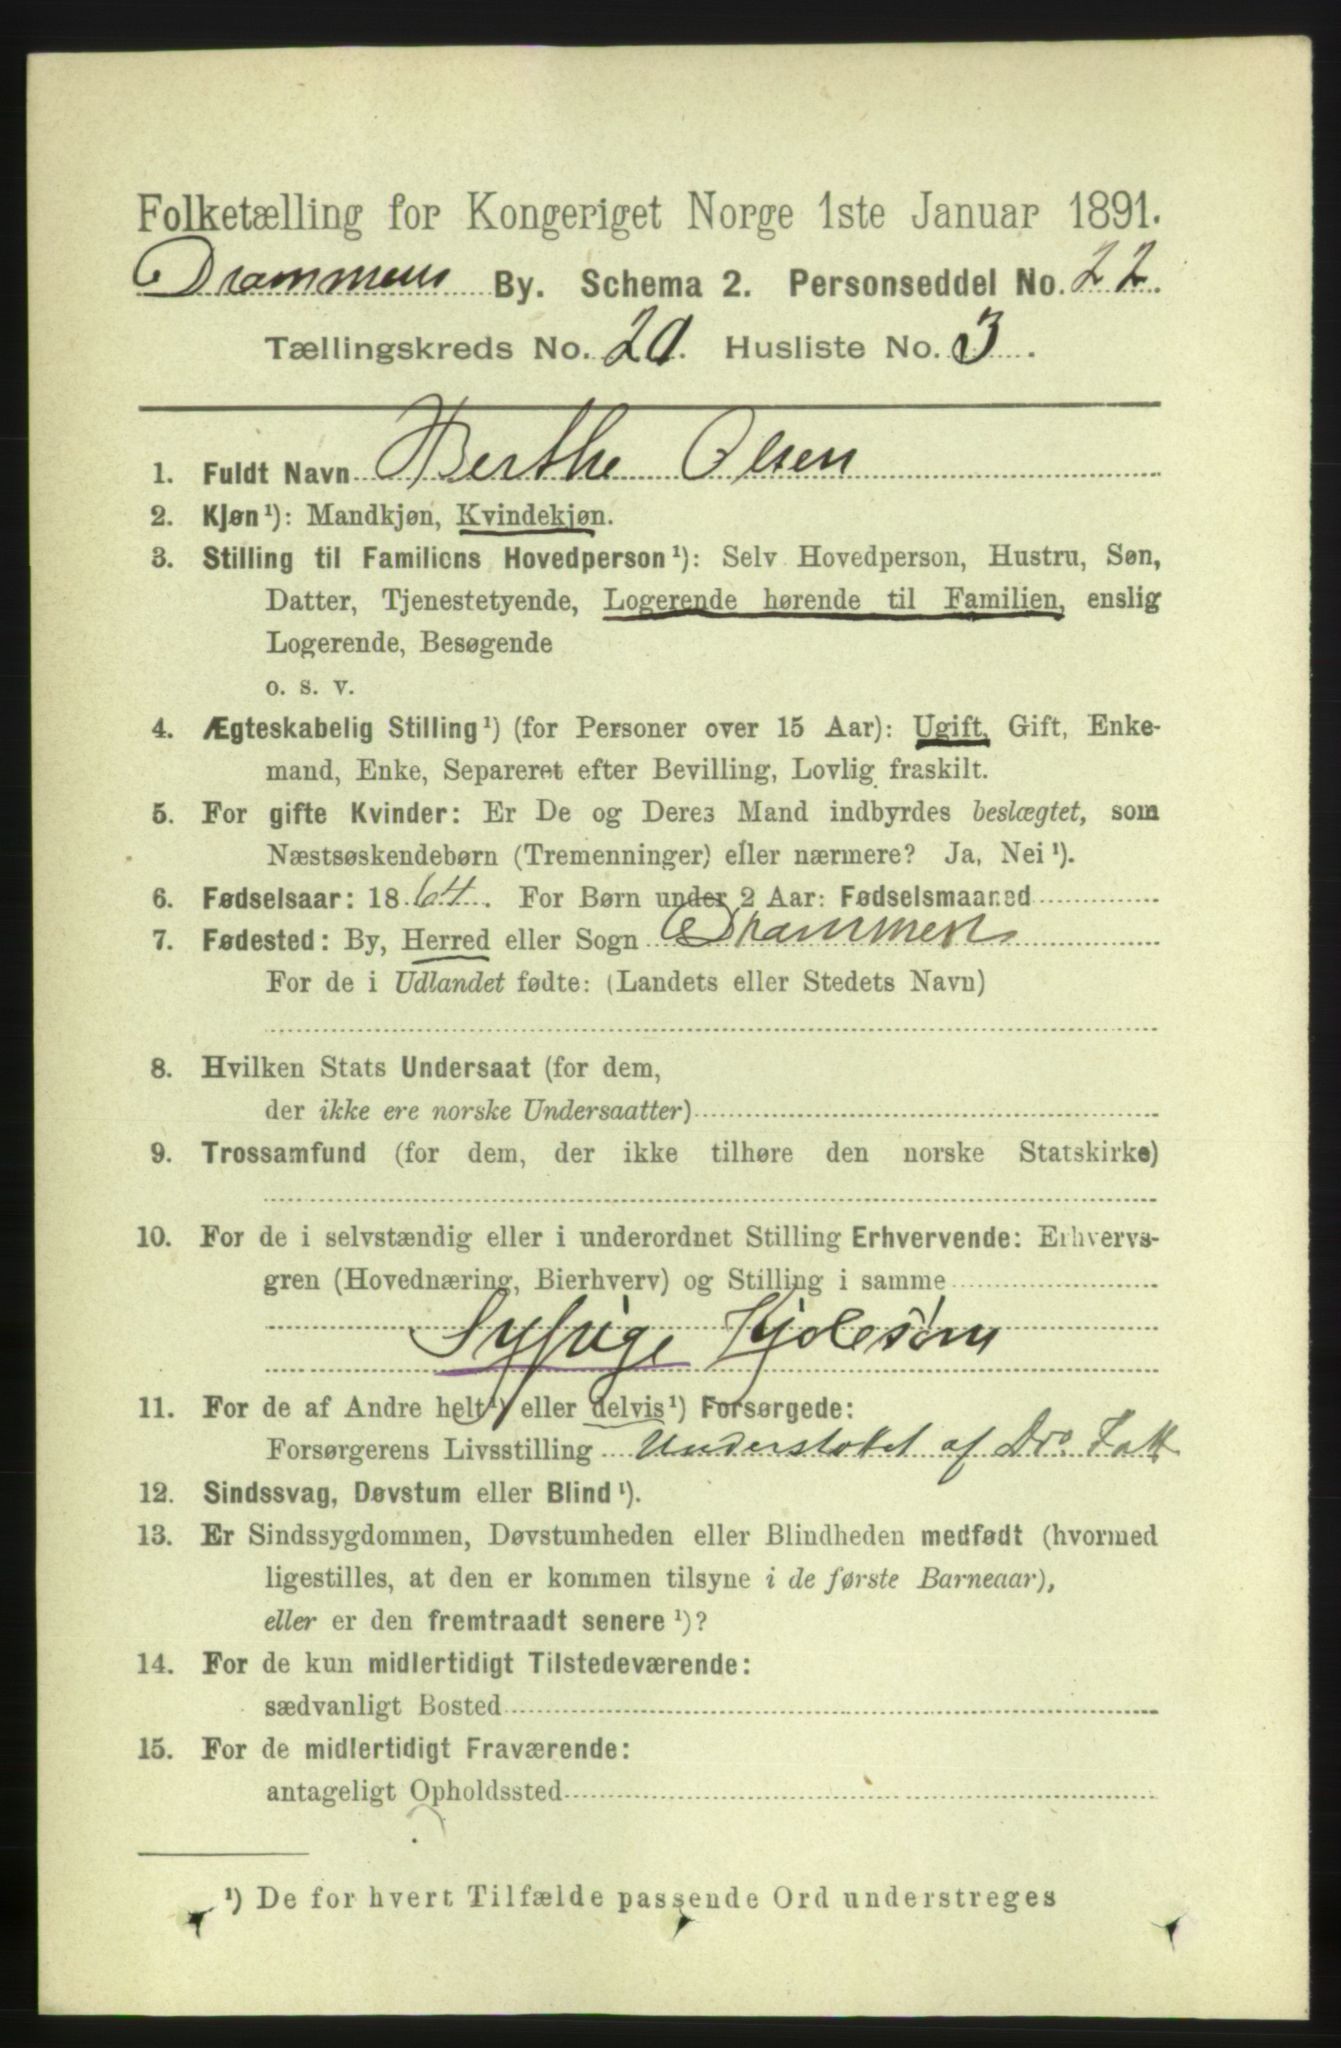 Folketælling for Kongeriget Norge 1ste Januar 1891.
Drammens By. Schema 2. Personseddel No. 22.
Tællingskreds No. 20. Husliste No. 3.
1. Fuldt Navn Berthe Olsen
2. Kjøn¹): Mandkjøn, Kvindekjøn.
3. Stilling til Familiens Hovedperson¹): Selv Hovedperson, Hustru, Søn,
Datter, Tjenestetyende, Logerende hørende til Familien, enslig
Logerende, Besøgende
o. s. v.
4. Ægteskabelig Stilling¹) (for Personer over 15 Aar): Ugift, Gift, Enke-
mand, Enke, Separeret efter Bevilling, Lovlig fraskilt.
5. For gifte Kvinder: Er De og Deres Mand indbyrdes beslægtet, som
Næstsøskendebørn (Tremenninger) eller nærmere? Ja, Nei¹).
6. Fødselsaar: 1864. For Børn under 2 Aar: Fødselsmaaned
7. Fødested: By, Herred eller Sogn Drammen
For de i Udlandet fødte: (Landets eller Stedets Navn)
8. Hvilken Stats Undersaat (for dem,
der ikke ere norske Undersaatter)
9. Trossamfund (for dem, der ikke tilhøre den norske Statskirke)
10. For de i selvstændig eller i underordnet Stilling Erhvervende: Erhvervs-
gren (Hovednæring, Bierhverv) og Stilling i samme
Sypige Kjolesøm
11. For de af Andre helt¹) eller delvis¹) Forsørgede:
Forsørgerens Livsstilling Understøttet af Dro
12. Sindssvag, Døvstum eller Blind¹).
13. Er Sindssygdommen, Døvstumheden eller Blindheden medfødt (hvormed
ligestilles, at den er kommen tilsyne i de første Barneaar),
eller er den fremtraadt senere¹)?
14. For de kun midlertidigt Tilstedeværende:
sædvanligt Bosted
15. For de midlertidigt Fraværende:
antageligt Opholdssted
¹) De for hvert Tilfælde passende Ord understreges